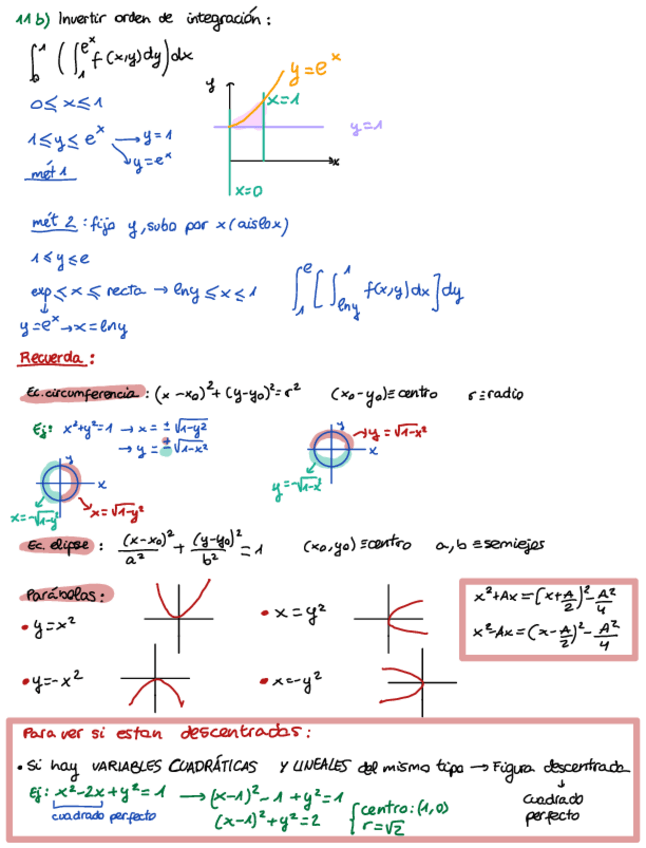 11 b) Invertir orden de integración:
∫₀¹ (∫₁^{e^x} f(x,y)dy)dx
y
y=e^x
x=1
y=1
x
x=0
0≤x≤1
1≤y≤e^x → y=1
→ y=e^x
mét 1
mét 2: fijo y, subo por x (aislo x)
1≤y≤e
exp ≤ x ≤ recta → lny ≤ x ≤ 1
∫₁^e [∫_{lny}^1 f(x,y)dx]dy
y=e^x → x=lny
Recuerda:
Ec. circumferencia: (x-x₀)²+(y-y₀)²=r² (x₀-y₀)≡centro r≡radio
Ej: x²+y²=1 → x=±√1-y²
→ y=±√1-x²
y
x
x=-√1-y²
x=√1-y²
y
x
y=√1-x²
y=-√1-x²
Ec. elipse: (x-x₀)²/a² + (y-y₀)²/b² = 1 (x₀,y₀)≡centro a,b≡semiejes
Parábolas:
• y=x²
• x=y²
• y=-x²
• x=-y²
x²+Ax=(x+A/2)²-A²/4
x²-Ax=(x-A/2)²-A²/4
Para ver si estan descentradas:
• Si hay VARIABLES CUADRÁTICAS Y LINEALES del mismo tipo → Figura descentrada
↓
cuadrado
perfecto
Ej: x²-2x+y²=1 → (x-1)²-1+y²=1
cuadrado perfecto
(x-1)²+y²=2
{centro:(1,0)
r=√2